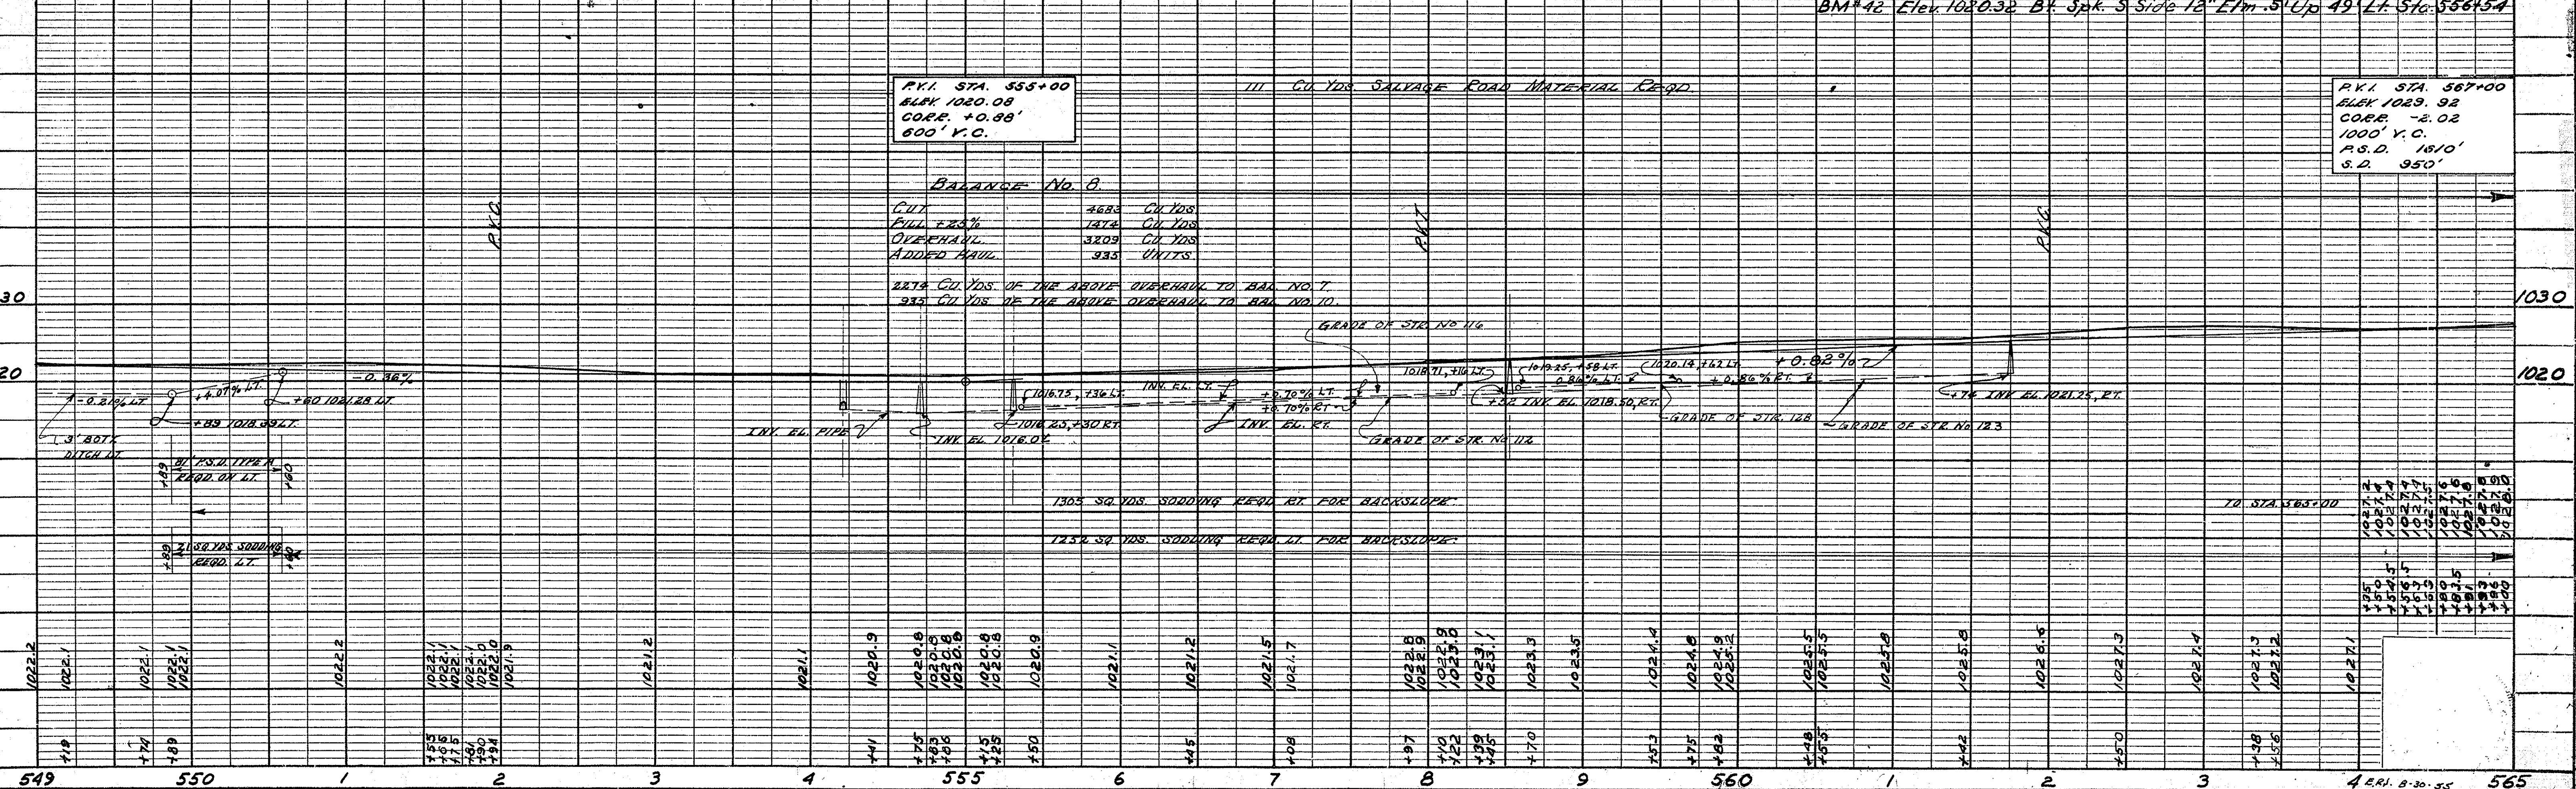 BM#42 Elev. 1020.32 Bt. Spk. S Side 12" Elm .5' Up 49' Lt. Sta. 556+54
P.V.I. STA. 555+00
ELEV. 1020.08
CORR. +0.88'
600' V.C.
111 CU. YDS. SALVAGE ROAD MATERIAL REQD.
P.V.I. STA. 567+00
ELEV. 1029.92
CORR. -2.02
1000' V.C.
P.S.D. 1610'
S.D. 950'
BALANCE NO. 8.
CUT 4683 CU. YDS
FILL +25% 1474 CU. YDS
OVERHAUL 3209 CU. YDS
ADDED HAUL 935 UNITS
2274 CU. YDS. OF THE ABOVE OVERHAUL TO BAL. NO. 7.
935 CU. YDS. OF THE ABOVE OVERHAUL TO BAL. NO. 10.
P.V.C.
P.V.T.
P.V.C.
30
1030
GRADE OF STR. NO 116
20
1020
-0.36%
+0.82%
-0.21% LT.
+4.07% LT.
+60 1021.28 LT.
+89 1018.39 LT.
3' BOTT.
DITCH LT.
INV. EL. PIPE
INV. EL. 1016.02
1016.75, +36 LT.
1016.25, +30 RT.
INV. EL. LT.
INV. EL. RT.
+0.70% LT.
+0.70% RT.
1018.71, +16 LT.
1019.25, +58 LT.
0.86% LT.
1020.14, +62 LT.
+0.86% RT.
+52 INV. EL. 1018.50, RT.
+74 INV. EL. 1021.25, RT.
GRADE OF STR. NO 112
GRADE OF STR. 128
GRADE OF STR. NO 123
+89 81' P.S.D. TYPE A +60
REQD. ON LT.
1305 SQ. YDS. SODDING REQD. RT. FOR BACKSLOPE.
TO STA. 565+00
+89 71 SQ. YDS. SODDING +60
REQD. LT.
1252 SQ. YDS. SODDING REQD. LT. FOR BACKSLOPE.
1027.2 1027.4 1027.4 1027.4 1027.4 1027.5 1027.6 1027.6 1027.8 1027.8 1027.9 1028.0
+35 +50 +54.5 +56.5 +63 +80 +83.5 +91 +93 +96 +00
1022.2 1022.1 1022.1 1022.1 1022.1 1022.2 1022.1 1022.1 1022.1 1022.1 1022.0 1022.0 1021.9 1021.2 1021.1 1020.9 1020.8 1020.8 1020.8 1020.8 1020.8 1020.8 1020.9 1021.1 1021.2 1021.5 1021.7 1022.8 1022.9 1022.9 1023.0 1023.1 1023.1 1023.3 1023.5 1024.4 1024.8 1024.9 1025.2 1025.5 1025.5 1025.8 1025.8 1026.6 1027.3 1027.4 1027.3 1027.2 1027.1
+19 +74 +89 +55 +65 +75 +81 +90 +94 +41 +75 +83 +86 +15 +25 +50 +45 +08 +97 +10 +22 +39 +45 +70 +53 +75 +82 +48 +55 +42 +50 +38 +56
549 550 1 2 3 4 555 6 7 8 9 560 1 2 3 4 E.R.J. 8-30-55 565